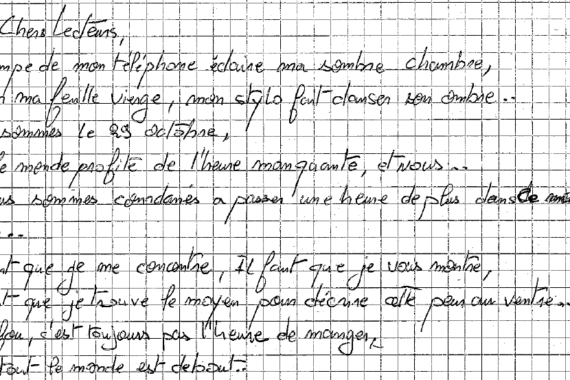 Chers Lecteurs,
mpe de mon téléphone éclaire ma sombre chambre,
ma feuille vierge, mon stylo fait danser son ombre..
sommes le 29 octobre,
le monde profite de l'heure manquante, et nous...
us sommes condanés a passer une heure de plus dans ce
...
nt que je me concentre, Il faut que je vous montre,
t que je trouve le moyen pour décrire cette peur au ventre..
fou, c'est toujours pas l'heure de manger,
tout le monde est debout..